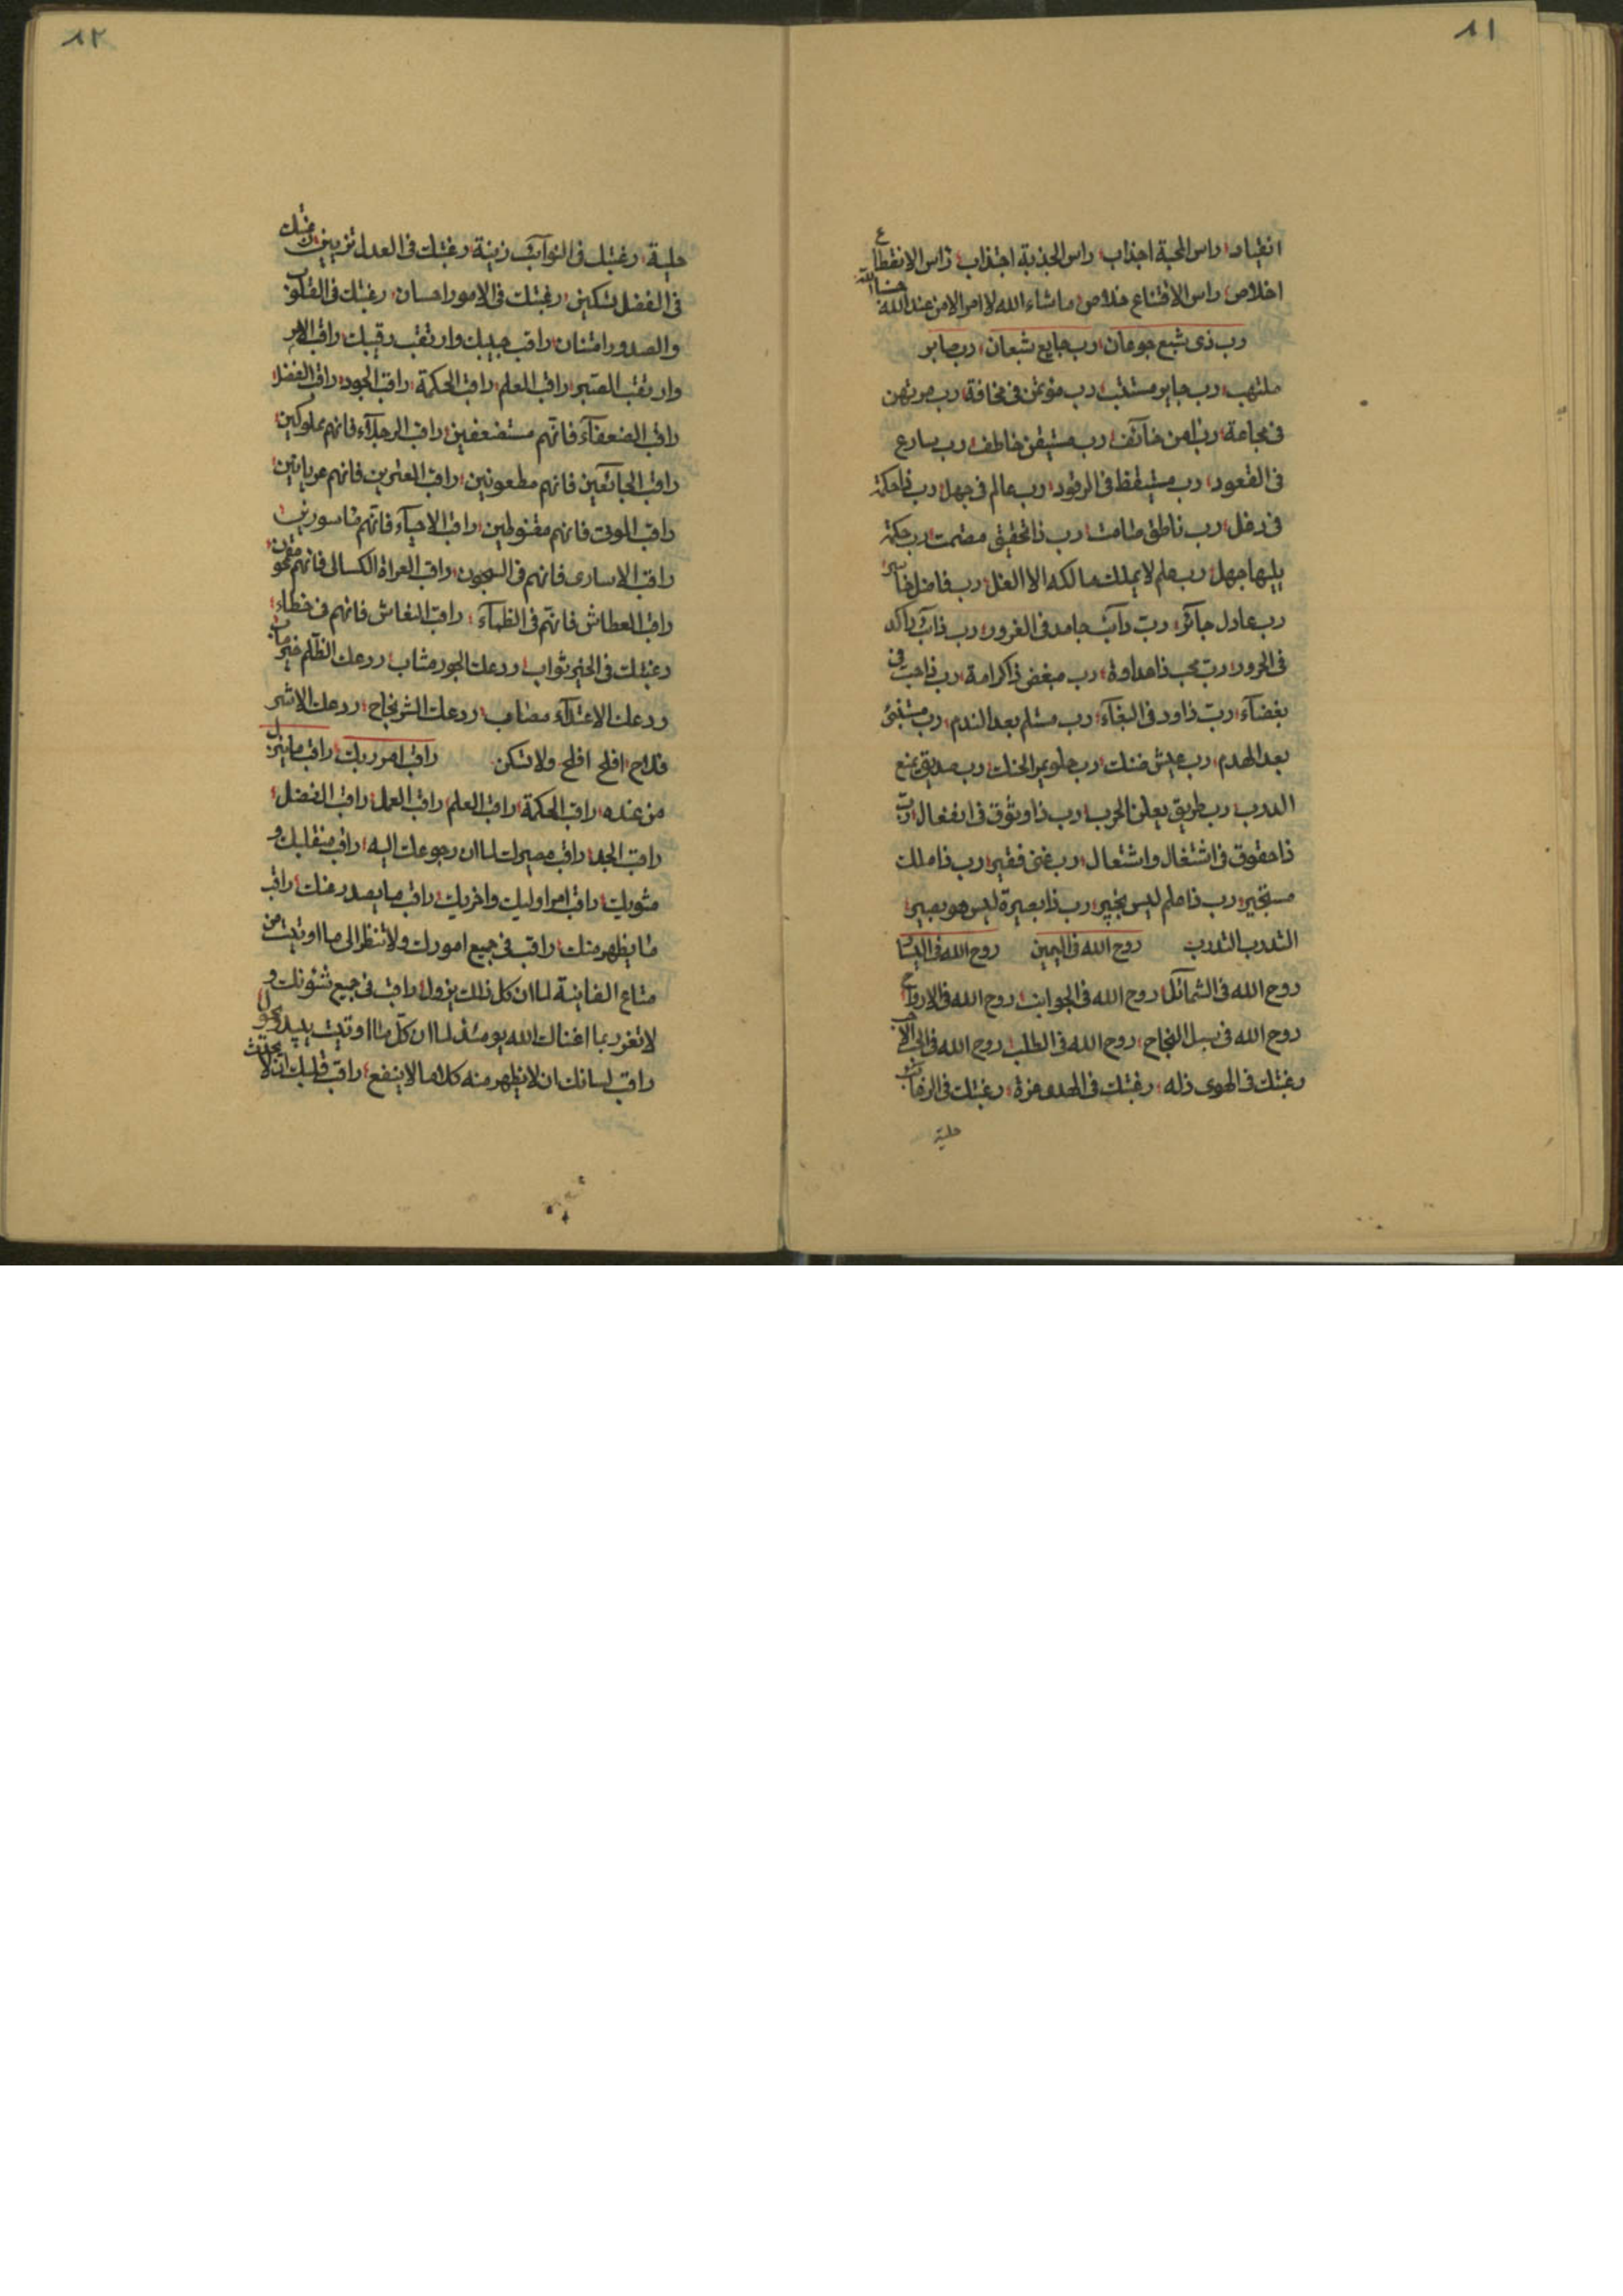 ٨١
انقیاد راس المحبة اجذاب راس الجذبة اجتذاب راس الانقطاع
اخلاص راس الاقتناع خلاص ماشاء الله لا امر الا من عند الله
رب ذی شبع جوعان رب جایع شبعان رب صابر
ملتهب رب جابر مستلب رب مؤتمن فی مخافة رب مرتهن
فی مجاعة رب امن خائف رب مستیقن خاطف رب سارع
فی القعود رب مستیقظ فی الرقود رب عالم فی جهل رب ذا حکمة
فی دغل رب ناطق صامت رب ذا تحقیق مصمت رب حکمة
یلیها جهل رب علم لا یملك مالکه الا الغل رب فاضل
رب عادل جائر رب دآئب جامد فی الغرور رب ذآئب راکد
فی الحرور رب محب ذا عداوة رب مبغض ذا کرامة رب ذا حب فی
بغضآء رب ذا ود فی البغآء رب مسلم بعد الندم رب
بعد الهدم رب عیش ضنك رب حلو یمر الحنك رب صدیق یمنع
الدرب رب طریق یعلن الحرب رب ذا وثوق فی انفعال رب
ذا حقوق فی اشتغال واشتعال رب غنی فقیر رب ذا ملك
مستجیر رب ذا علم لیس بخبیر رب ذا بصیرة لیس هو بصیر
التدرب التدرب روح الله فی الیمین روح الله فی الیسار
روح الله فی الشمآئل روح الله فی الجوانب روح الله فی الارواح
روح الله فی سبل النجاح روح الله فی الطلب روح الله فی
رغبتك فی الهوی ذله رغبتك فی الهدی عزة رغبتك فی
حلیة
٨٢
حلیة رغبتك فی النوآئب زینة رغبتك فی العدل تزیین رغبتك
فی الفضل تسکین رغبتك فی الامور احسان رغبتك فی القلوب
والصدور امتنان راقب حبیبك وارتقب رقیبك راقب الامر
وارتقب الصبر راقب العلم راقب الحکمة راقب الجود راقب الفضل
راقب الضعفآء فانهم مستضعفین راقب فانهم مملوکین
راقب الجائعین فانهم مطعونین راقب فانهم عریانین
راقب الموتی فانهم مقنوطین راقب الاحیآء فانهم ماسورین
راقب الاساری فانهم فی السجون راقب العراة الکسالی فانهم
راقب العطاش فانهم فی الظمآء راقب فانهم فی خطاء
رغبتك فی الخیر ثواب ردعك الجور مثاب ردعك الظلم خیر ماب
ردعك الاعتدآء مصاب ردعك الشر نجاح ردعك الاشر
فلاح افلح افلح ولا تکن راقب امر ربك راقب ما ینزل
من عنده راقب الحکمة راقب العلم راقب العمل راقب الفضل
راقب الجد راقب مصیرك لما ان رجوعك الیه راقب منقلبك و
مثویك راقب امر اولیك واخریك راقب ما یصدر عنك راقب
ما یظهر منك راقب فی جمیع امورك ولا تنظر الی ما اوتیت من
متاع الفانیة لما ان کل ذلك یزول راقب فی جمیع شئونك و
لا تغرر بما اغناك الله یومئذ لما ان کل ما اوتیت یبید ویحول
راقب لسانك ان لا یظهر منه کلاما لا ینفع راقب قلبك ان لا یحدث